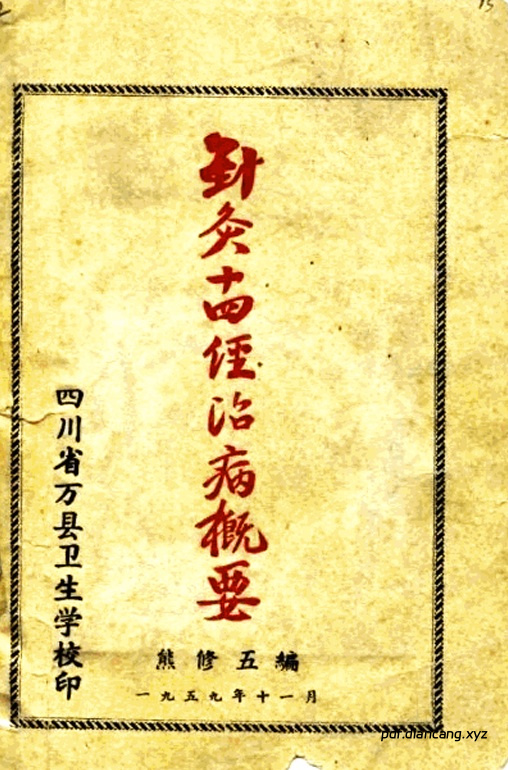 针灸十四经治病概要
四川省万县卫生学校印
熊修五编
一九五九年十一月
15
pdf.diancang.xyz